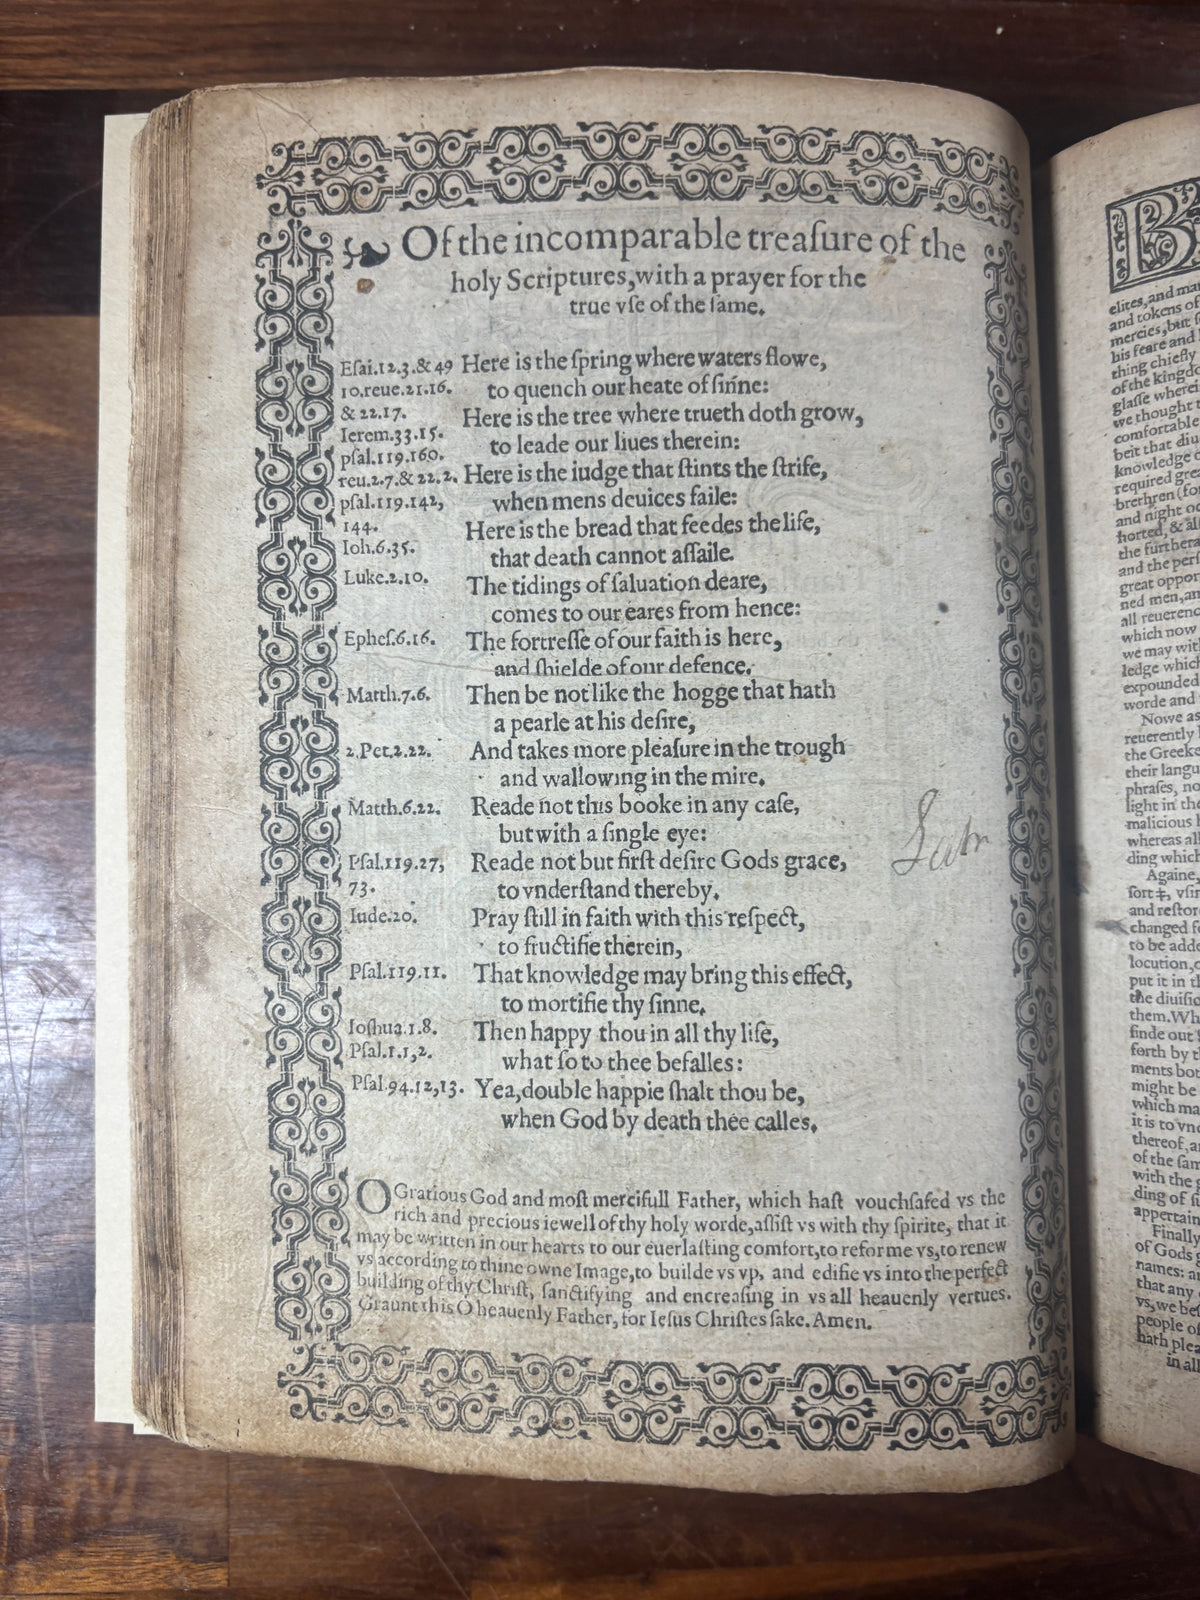 Of the incomparable treaſure of the
holy Scriptures, with a prayer for the
true vſe of the ſame.
Eſai.12.3.& 49
10.reue.21.16.
& 22.17.
Ierem.33.15.
pſal.119.160.
reu.2.7.& 22.2.
pſal.119.142,
144.
Ioh.6.35.
Luke.2.10.
Epheſ.6.16.
Matth.7.6.
2.Pet.2.22.
Matth.6.22.
Pſal.119.27,
73.
Iude.20.
Pſal.119.11.
Ioſhua.1.8.
Pſal.1.1,2.
Pſal.94.12,13.
Here is the ſpring where waters flowe,
to quench our heate of ſinne:
Here is the tree where trueth doth grow,
to leade our liues therein:
Here is the iudge that ſtints the ſtrife,
when mens deuices faile:
Here is the bread that feedes the life,
that death cannot aſſaile.
The tidings of ſaluation deare,
comes to our eares from hence:
The fortreſſe of our faith is here,
and ſhielde of our defence.
Then be not like the hogge that hath
a pearle at his deſire,
And takes more pleaſure in the trough
and wallowing in the mire.
Reade not this booke in any caſe,
but with a ſingle eye:
Reade not but firſt deſire Gods grace,
to vnderſtand thereby.
Pray ſtill in faith with this reſpect,
to fructifie therein,
That knowledge may bring this effect,
to mortifie thy ſinne.
Then happy thou in all thy life,
what ſo to thee befalles:
Yea, double happie ſhalt thou be,
when God by death thee calles.
O Gratious God and moſt mercifull Father, which haſt vouchſafed vs the
rich and precious iewell of thy holy worde, aſſiſt vs with thy ſpirite, that it
may be written in our hearts to our euerlaſting comfort, to reforme vs, to renew
vs according to thine owne Image, to builde vs vp, and edifie vs into the perfect
building of thy Chriſt, ſanctifying and encreaſing in vs all heauenly vertues.
Graunt this O heauenly Father, for Ieſus Chriſtes ſake. Amen.
B
elites, and
and tokens of
mercies, but
his feare and
thing chiefly
of the
glaſſe
we thought
comfortable
beit that
knowledge
required
brethren
and night
horted, &
the
and the
great
ned men,
all
which now
we may
ledge
expounded
worde and
Nowe as
reuerently
the
their
phraſes,
light in
malicious
whereas
ding
Againe,
ſort
and
changed
to be
locution,
put it in
the
them.
finde out
forth by
ments
might be
which
it is to
thereof,
of the
with the
ding of
Finally
of Gods
names:
that any
vs, we
people
hath
in